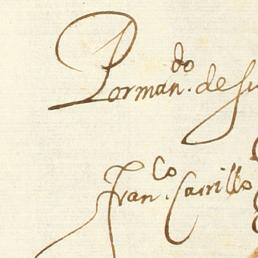 Por man.do de Su
Fran.co Carrillo